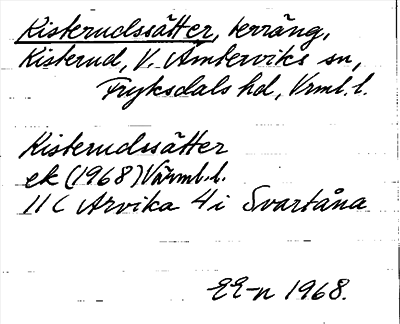 Kisterudssätter, terräng,
Kisterud, V. Ämterviks sn,
Fryksdals hd, Vrml.l.
Kisterudssätter
ek (1968) Värml.l.
11 C Arvika 4 i Svartåna
EE-n 1968.